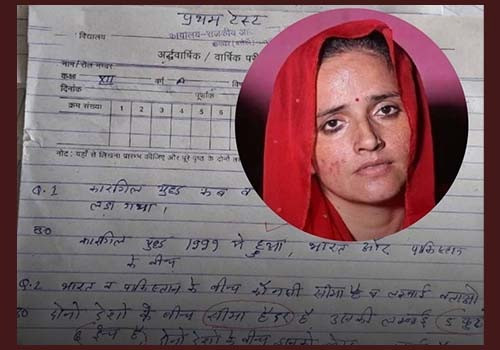 प्रथम टेस्ट
कार्यालय-राजकीय आ
विद्यालय
अर्द्धवार्षिक / वार्षिक परी
नाम/रोल नम्बर
कक्षा XII वर्ग A वि
दिनांक पूर्णांक
क्रम संख्या 1 2 3 4 5 6 7 8
नोट: यहाँ से लिखना प्रारम्भ कीजिए और पूरे पृष्ठ के दोनों तर
Q.1 कारगिल युद्ध कब व
लडा गया।
कारगिल युद्ध 1999 मे हुआ, भारत और पाकिस्तान
के बीच
Q.2 भारत व पाकिस्तान के बीच कौनसी सीमा है व लम्बाई बताओ
दोनो देशो के बीच सीमा हैदर है उसकी लम्बाई 5 फुट
6 ईन्च है, दोनो देशो के बीच